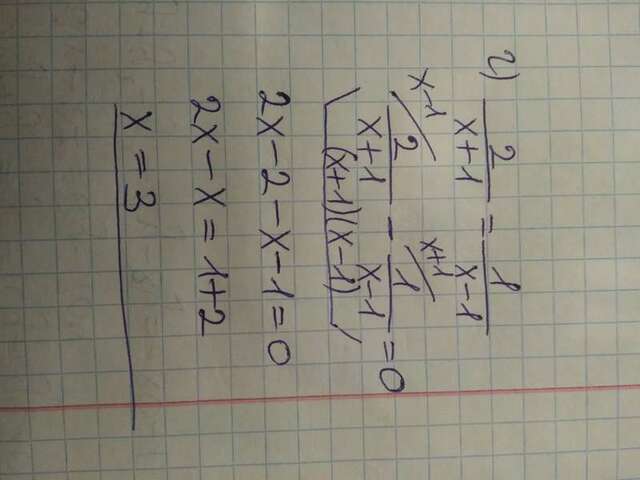 г) 2/(x+1) = 1/(x-1)
x-1/ 2/(x+1) - x+1/ 1/(x-1) = 0
(x+1)(x-1)
2x-2-x-1=0
2x-x=1+2
x=3